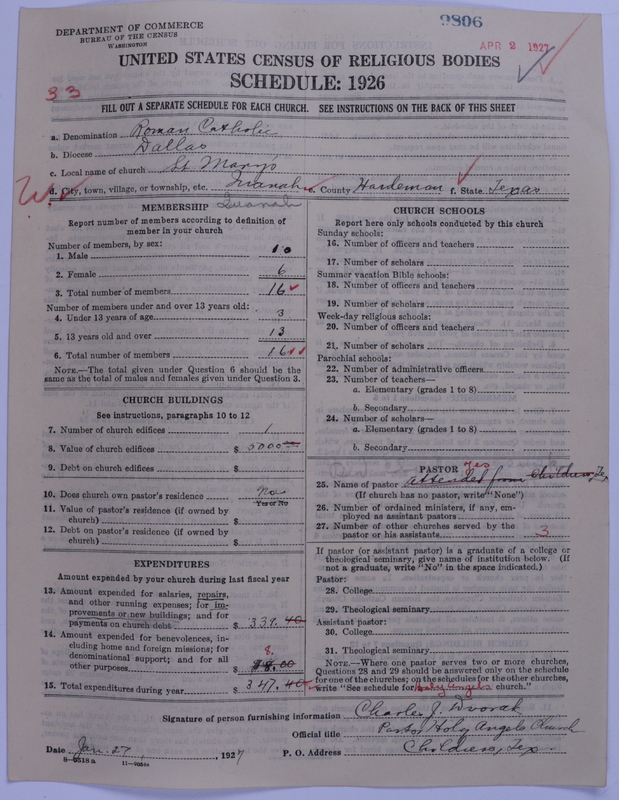 DEPARTMENT OF COMMERCE
BUREAU OF THE CENSUS
WASHINGTON
9896
APR 2 1927
UNITED STATES CENSUS OF RELIGIOUS BODIES
SCHEDULE: 1926
33
FILL OUT A SEPARATE SCHEDULE FOR EACH CHURCH. SEE INSTRUCTIONS ON THE BACK OF THIS SHEET
a. Denomination Roman Catholic
b. Diocese Dallas
c. Local name of church St Mary's
d. City, town, village, or township, etc. Quanah e. County Hardeman f. State Texas
MEMBERSHIP Quanah
Report number of members according to definition of
member in your church
Number of members, by sex:
1. Male 10
2. Female 6
3. Total number of members 16
Number of members under and over 13 years old:
4. Under 13 years of age 3
5. 13 years old and over 13
6. Total number of members 16
NOTE.—The total given under Question 6 should be
same as the total of males and females given under Question 3.
CHURCH BUILDINGS
See instructions, paragraphs 10 to 12
7. Number of church edifices 1
8. Value of church edifices $ 5000
9. Debt on church edifices $
10. Does church own pastor's residence No
Yes or No
11. Value of pastor's residence (if owned by
church) $
12. Debt on pastor's residence (if owned by
church) $
EXPENDITURES
Amount expended by your church during last fiscal year
13. Amount expended for salaries, repairs,
and other running expenses; for im-
provements or new buildings; and for
payments on church debt $ 339.40
14. Amount expended for benevolences, in-
cluding home and foreign missions; for
denominational support; and for all 8.
other purposes $ 18.00
15. Total expenditures during year $ 347.40
CHURCH SCHOOLS
Report here only schools conducted by this church
Sunday schools:
16. Number of officers and teachers
17. Number of scholars
Summer vacation Bible schools:
18. Number of officers and teachers
19. Number of scholars
Week-day religious schools:
20. Number of officers and teachers
21. Number of scholars
Parochial schools:
22. Number of administrative officers
23. Number of teachers—
a. Elementary (grades 1 to 8)
b. Secondary
24. Number of scholars—
a. Elementary (grades 1 to 8)
b. Secondary
PASTOR yes
25. Name of pastor attended from Childress, Tex
(If church has no pastor, write "None")
26. Number of ordained ministers, if any, em-
ployed as assistant pastors
27. Number of other churches served by the
pastor or his assistants 3
If pastor (or assistant pastor) is a graduate of a college or
theological seminary, give name of institution below. (If
not a graduate, write "No" in the space indicated.)
Pastor:
28. College
29. Theological seminary
Assistant pastor:
30. College
31. Theological seminary
NOTE.—Where one pastor serves two or more churches,
Questions 28 and 29 should be answered only on the schedule
for one of the churches; on the schedules for the other churches,
write "See schedule for Holy Angels church."
Signature of person furnishing information Charles J. Dvorak
Official title Pastor Holy Angels Church
Date Jan. 27, 1927 P. O. Address Childress, Tex
8—5518a 11—